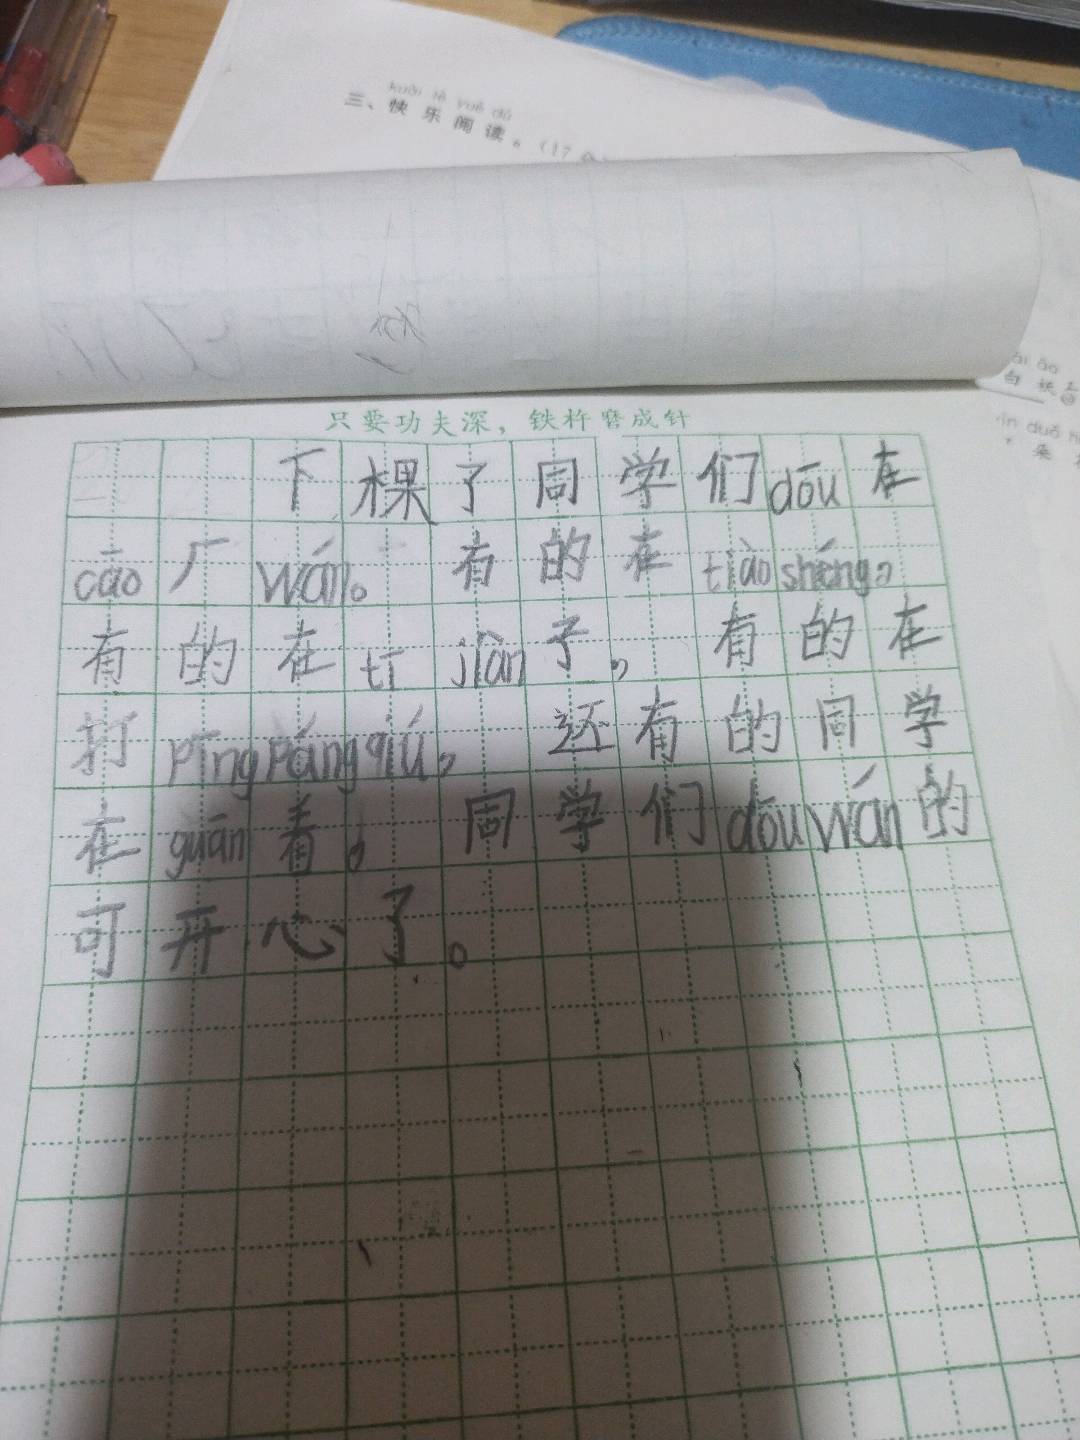 kuài lè yuè dú
三、快乐阅读。(17分
ǎi áo
只要功夫深，铁杵磨成针
下棵了同学们dōu在
cāo厂wán。有的在tiào shéng，
有的在tī jiàn子，有的在
打pīng pāng qiú，还有的同学
在guān着。同学们dōu wán的
可开心了。